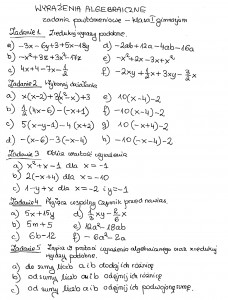 WYRAŻENIA ALGEBRAICZNE
zadania powtórzeniowe – klasa I gimnazjum
Zadanie 1. Zredukuj wyrazy podobne.
a) -3x-6y+3+5x-18y
b) -x²+3x+3x²-17x
c) 4x+4-7x-½
d) -2ab+12a-4ab-16a
e) -x²+2x-3x+x²
f) -2xy+½x+3xy-¾x
Zadanie 2. Wykonaj działania
a) x(x-2)+3(x²-x)+3
b) ½(4x-6)-(-x+1)
c) 5(x-y-1)-4(x+2)
d) -(x-6)-3(-x-4)
e) 10(x-4)-2
f) -10(x-4)-2
g) 10(-x+4)-2
h) -10(-x-4)-2
Zadanie 3. Oblicz wartość wyrażenia
a) x²+x-1 dla x=-1
b) 2(-x+4) dla x=-10
c) 1-y+x dla x=-2 i y=-1
Zadanie 4. Wyłącz wspólny czynnik przed nawias.
a) 5x+15y
b) 5m+5
c) 6b-12
e) 12a²-18ab
f) -6a²-2a
Zadanie 5. Zapisz w postaci wyrażenia algebraicznego oraz zredukuj
wyrazy podobne.
a) do sumy liczb a i b dodaj ich różnicę
b) od sumy liczb a i b odejmij ich różnicę
c) od sumy liczb a i b odejmij ich podwojoną sumę.